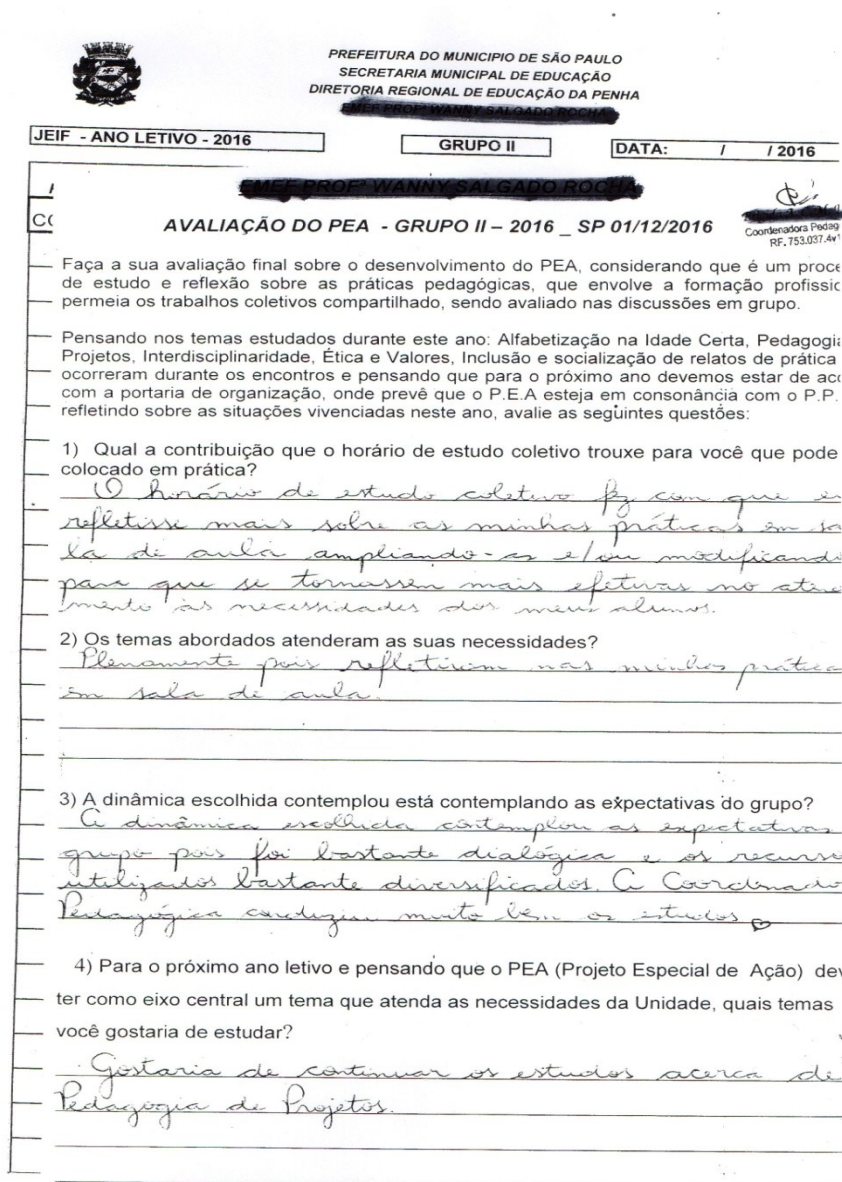 PREFEITURA DO MUNICIPIO DE SÃO PAULO
SECRETARIA MUNICIPAL DE EDUCAÇÃO
DIRETORIA REGIONAL DE EDUCAÇÃO DA PENHA
EMEF PROFª WANNY SALGADO ROCHA
JEIF - ANO LETIVO - 2016 GRUPO II DATA: / / 2016
EMEF PROFª WANNY SALGADO ROCHA
AVALIAÇÃO DO PEA - GRUPO II – 2016 _ SP 01/12/2016
Coordenadora Pedag
RF. 753.037.4v1
Faça a sua avaliação final sobre o desenvolvimento do PEA, considerando que é um proce
de estudo e reflexão sobre as práticas pedagógicas, que envolve a formação profissio
permeia os trabalhos coletivos compartilhado, sendo avaliado nas discussões em grupo.
Pensando nos temas estudados durante este ano: Alfabetização na Idade Certa, Pedagogia
Projetos, Interdisciplinaridade, Ética e Valores, Inclusão e socialização de relatos de prática
ocorreram durante os encontros e pensando que para o próximo ano devemos estar de aco
com a portaria de organização, onde prevê que o P.E.A esteja em consonância com o P.P.
refletindo sobre as situações vivenciadas neste ano, avalie as seguintes questões:
1) Qual a contribuição que o horário de estudo coletivo trouxe para você que pode
colocado em prática?
O horário de estudo coletivo fez com que eu
refletisse mais sobre as minhas práticas em sa
la de aula ampliando-as e/ou modificando
para que se tornassem mais efetivas no aten
mento às necessidades dos meus alunos.
2) Os temas abordados atenderam as suas necessidades?
Plenamente pois refletiram nas minhas prática
em sala de aula.
3) A dinâmica escolhida contemplou está contemplando as expectativas do grupo?
A dinâmica escolhida contemplou as expectativas
grupo pois foi bastante dialógica e os recurso
utilizados bastante diversificados. A Coordenado
Pedagógica conduziu muito bem os estudos
4) Para o próximo ano letivo e pensando que o PEA (Projeto Especial de Ação) dev
ter como eixo central um tema que atenda as necessidades da Unidade, quais temas
você gostaria de estudar?
Gostaria de continuar os estudos acerca de
Pedagogia de Projetos.